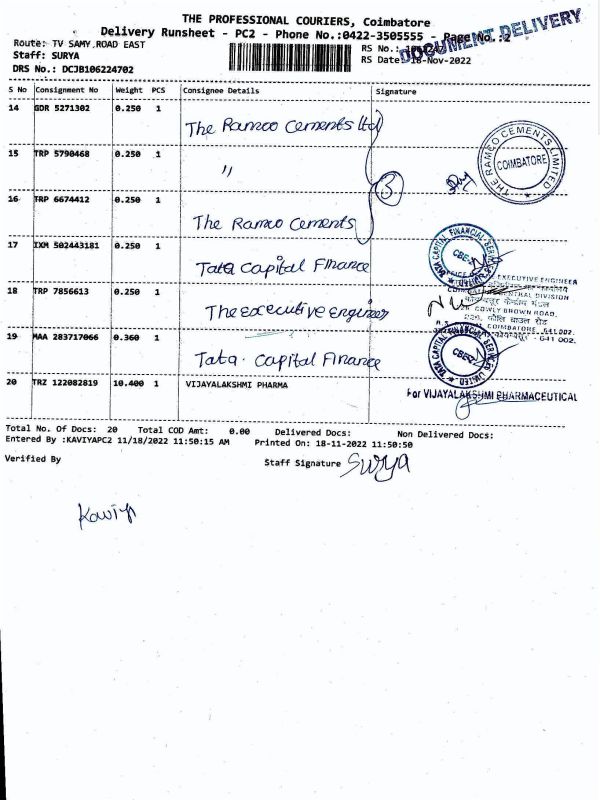 THE PROFESSIONAL COURIERS, Coimbatore
Delivery Runsheet - PC2 - Phone No.:0422-3505555 - Page No.:2
DOCUMENT DELIVERY
Route: TV SAMY,ROAD EAST
RS No.:
Staff: SURYA
RS Date: 18-Nov-2022
DRS No.: DCJB106224702
S No Consignment No Weight PCS Consignee Details Signature
14 GDR 5271302 0.250 1 The Ramco Cements Ltd
15 TRP 5790468 0.250 1 "
THE RAMCO CEMENTS LIMITED
COIMBATORE
3
16 TRP 6674412 0.250 1 The Ramco Cements
17 IXM 502443181 0.250 1 Tata Capital Finance
TATA CAPITAL FINANCIAL SERVICES LIMITED
CBE-2
18 TRP 7856613 0.250 1 The executive engineer
EXECUTIVE ENGINEER
CENTRAL DIVISION
COWLY BROWN ROAD,
COIMBATORE, 641 002.
- 641 002.
19 MAA 283717066 0.360 1 Tata. Capital Finance
TATA CAPITAL FINANCIAL SERVICES LIMITED
CBE-2
20 TRZ 122082819 10.400 1 VIJAYALAKSHMI PHARMA
For VIJAYALAKSHMI PHARMACEUTICAL
Total No. Of Docs: 20 Total COD Amt: 0.00 Delivered Docs: Non Delivered Docs:
Entered By :KAVIYAPC2 11/18/2022 11:50:15 AM Printed On: 18-11-2022 11:50:50
Verified By Staff Signature Surya
Kaviya